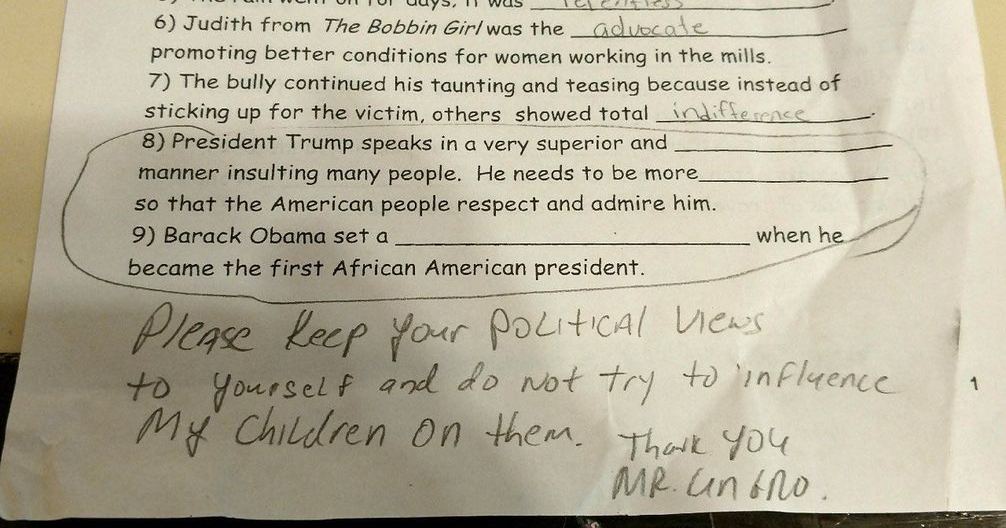 6) Judith from The Bobbin Girl was the advocate
promoting better conditions for women working in the mills.
7) The bully continued his taunting and teasing because instead of
sticking up for the victim, others showed total indifference.
8) President Trump speaks in a very superior and ____________
manner insulting many people. He needs to be more____________
so that the American people respect and admire him.
9) Barack Obama set a ____________________ when he
became the first African American president.
Please keep your political views
to yourself and do not try to influence
My children on them. Thank you
MR.
1